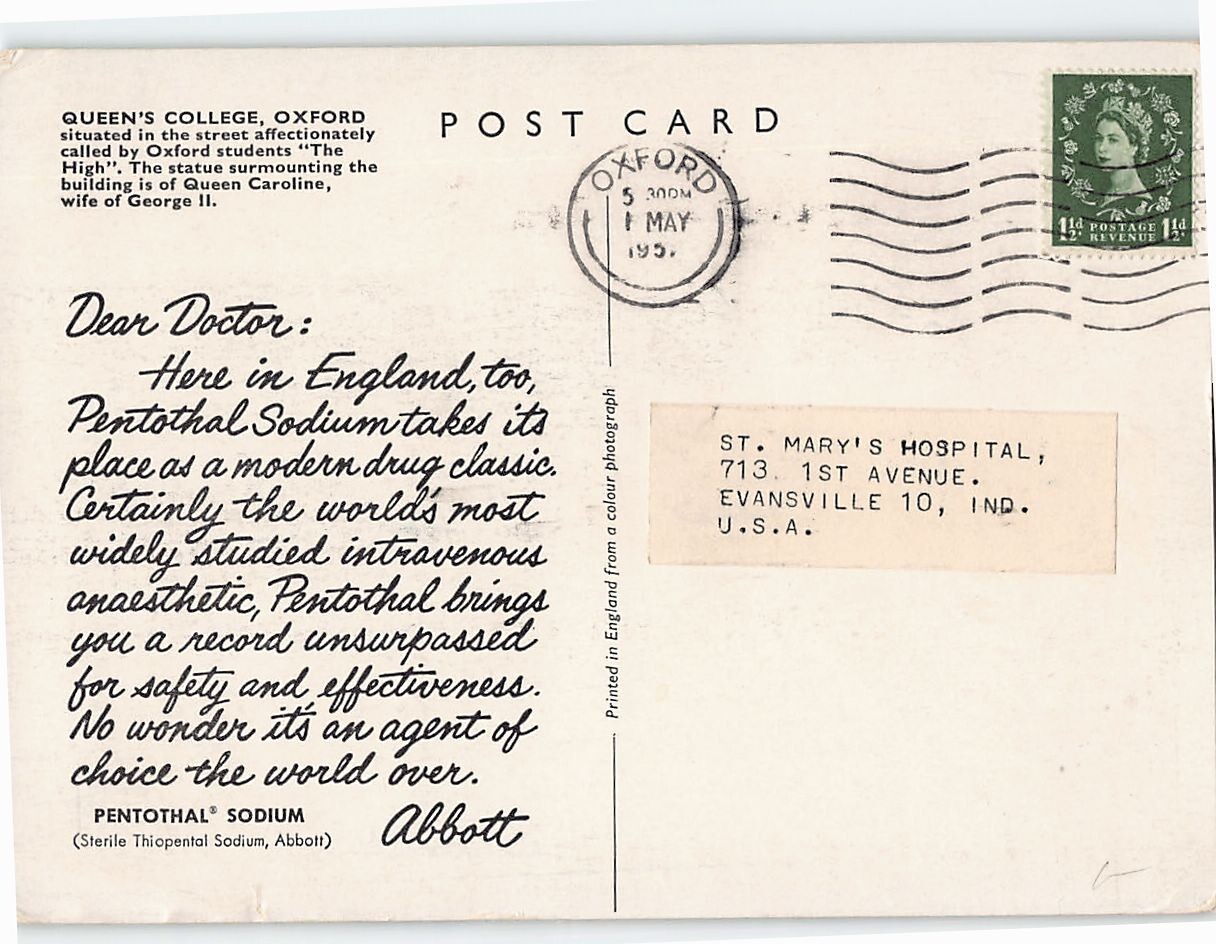 QUEEN'S COLLEGE, OXFORD
situated in the street affectionately
called by Oxford students "The
High". The statue surmounting the
building is of Queen Caroline,
wife of George II.
POST CARD
OXFORD
5 30PM
1 MAY
195
1½d POSTAGE REVENUE 1½d
Dear Doctor:
Here in England, too,
Pentothal Sodium takes its
place as a modern drug classic.
Certainly the world's most
widely studied intravenous
anaesthetic, Pentothal brings
you a record unsurpassed
for safety and effectiveness.
No wonder it's an agent of
choice the world over.
PENTOTHAL® SODIUM
(Sterile Thiopental Sodium, Abbott)
Abbott
Printed in England from a colour photograph
ST. MARY'S HOSPITAL,
713. 1ST AVENUE.
EVANSVILLE 10, IND.
U.S.A.